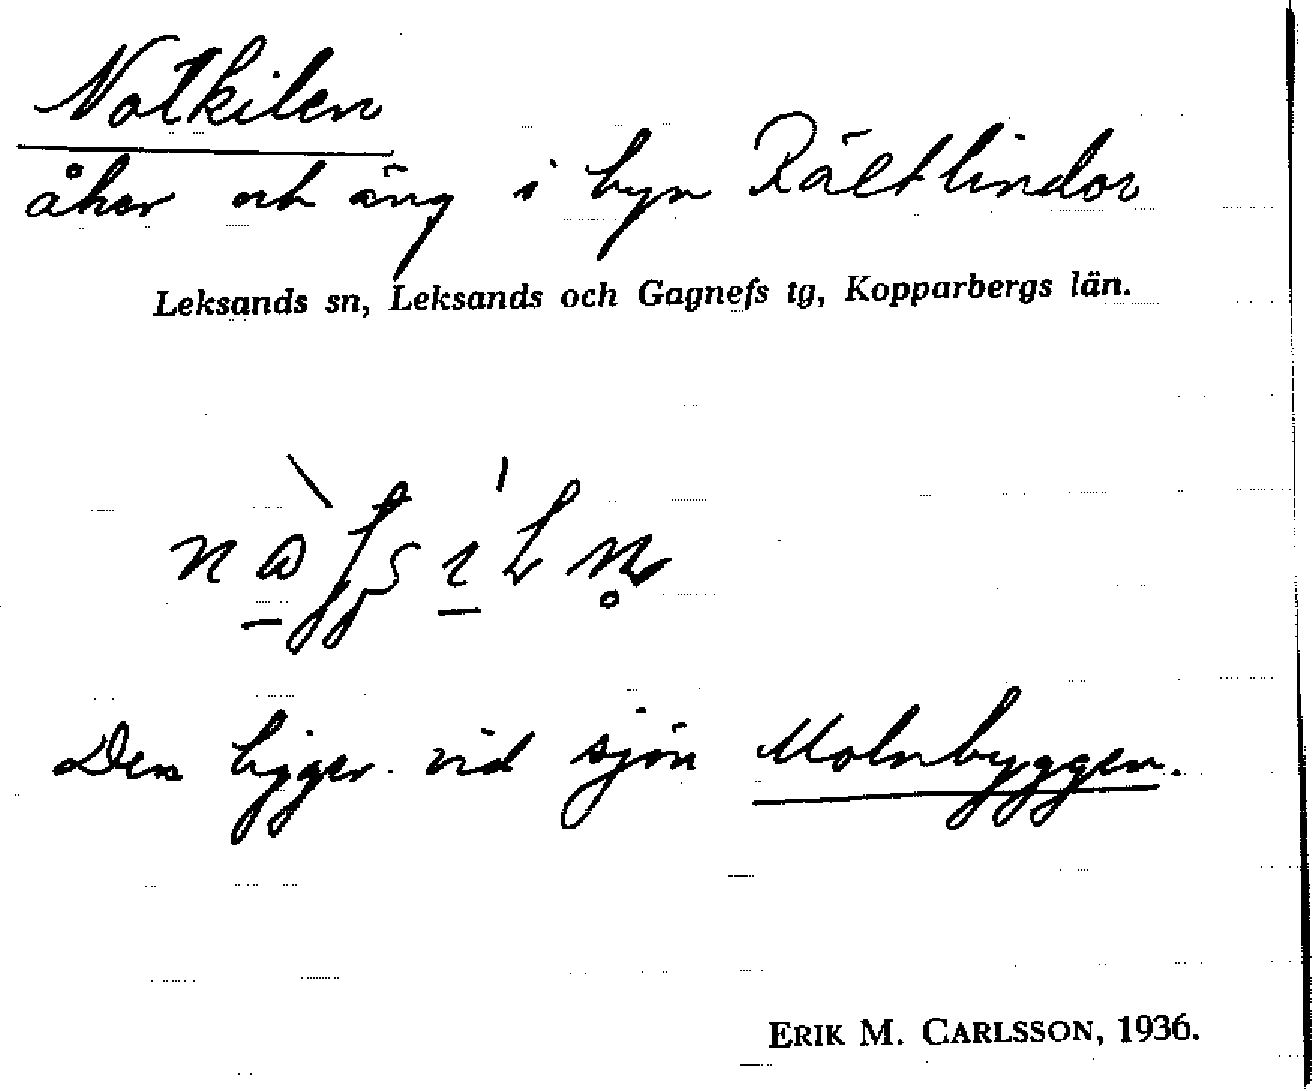 Notkilen
åker och äng i byn Rältlindor
Leksands sn, Leksands och Gagnefs tg, Kopparbergs län.
Den ligger vid sjön Molnbyggen.
ERIK M. CARLSSON, 1936.